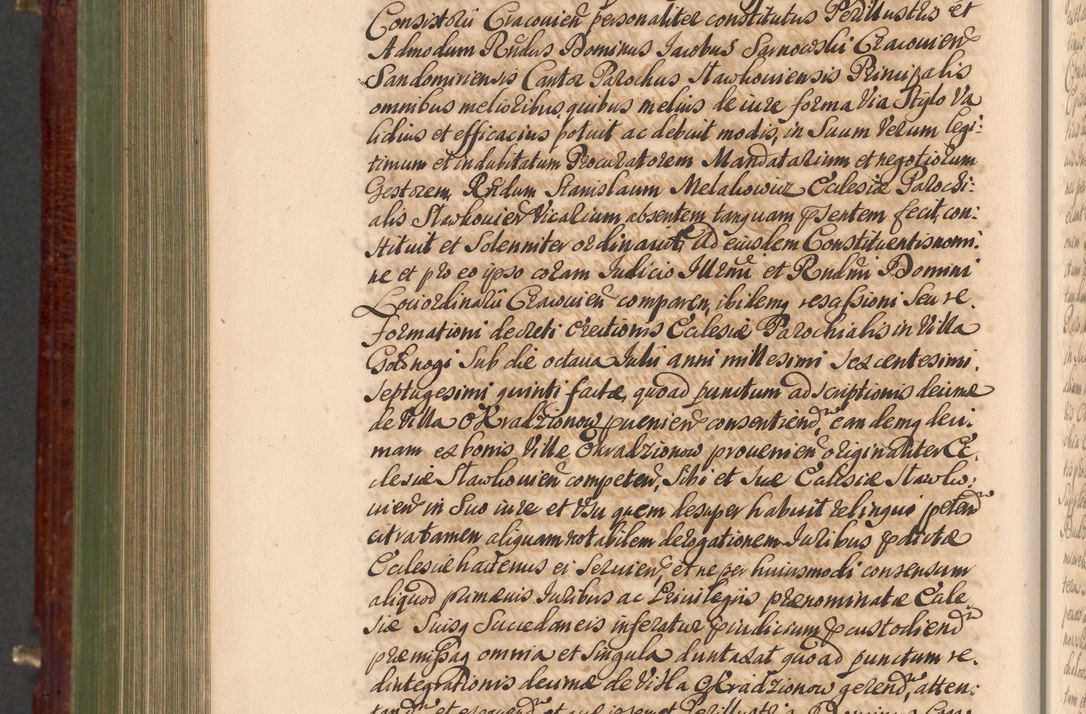 Consistorii Cracouien̄ personaliter constitutus Perillustris et
Admodum Rn̄dus Dominus Iacobus Sarnowski Cracouien̄
Sandomiriensis Cantor Parochus Slawkouiensis Principalis
omnibus melioribus, quibus melius de iure forma Via Stylo Va
lidius et efficacius potuit ac debuit modis, in Suum Verum legi:
timum et indubitatum Procuratorem Mandatarium et negotiorum
Gestorem, Rn̄dum Stanislaum Melakowicz Ecclesiæ Parochi:
alis Slawkouien̄ Vicarium absentem tanquam p̄sentem fecit, con:
stituit et Solenniter ordinauit Ad eiusdem Constituentis nomi:
ne et pro eo ipso coram Iudicio Illr̄mi et Rn̄dm̄i Domini
Lociordinarii Cracouien̄ comparen, ibidemq rescissioni Seu re
formationi decreti erectionis Ecclesiæ Parochialis in Villa
Golonogi Sub die octaua Iulii anni millesimi sexcentesimi,
septuagesimi quinti factæ, quoad punctum adscriptionis decimæ
de Villa Okradzionow puenien̄ consentiend, eandemq deci:
mam ex bonis Villæ Okradzionow prouenien̄ originaliter Ec:
clesiæ Slawkouien̄ competen, Sibi et suæ Ecclesiæ Slawko:
uien̄ in Suo iure et Vsu quem desuper habuit relinqui petend
citra tamen aliquam notabilem derogationem Iuribus p̄dictæ
Ecclesiæ hactenus ei Seruien̄ et ne per huiusmodi consensum
aliquod primæuis Iuribus ac Priuilegiis prænominatæ Eccle
siæ Suisq Succedaneis inferatur p̄iudicium p̄custodiend
præmissaq omnia et Singula duntaxat quoad punctum re:
dintegrationis decimæ de Villa Okradzionow gerend, atten: